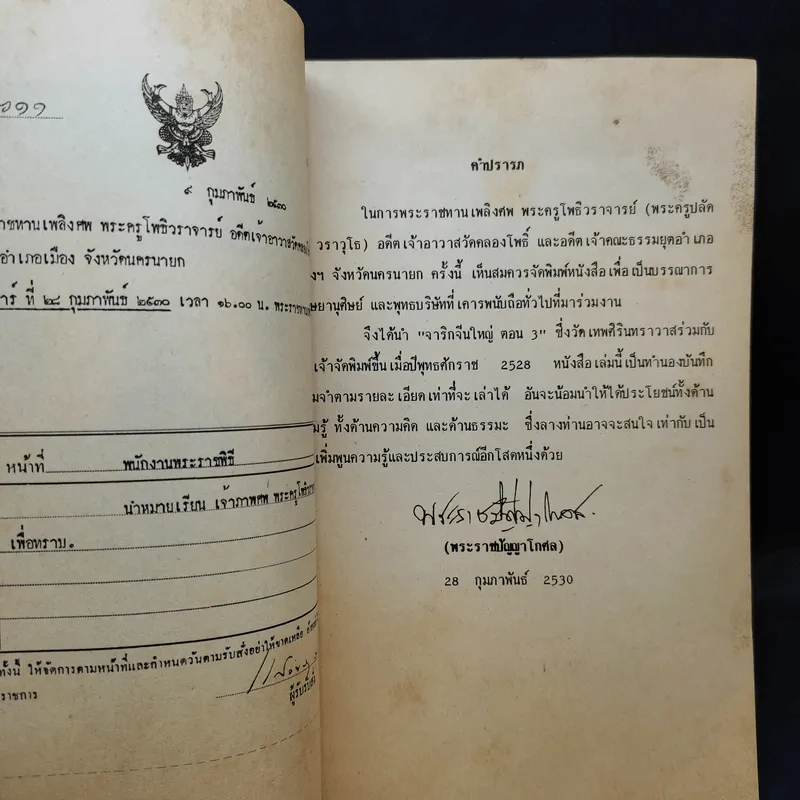 ๙ กุมภาพันธ์ ๒๕๓๐
ชทานเพลิงศพ พระครูโพธิวราจารย์ อดีตเจ้าอาวาสวัดคลองโพธิ์
อำเภอเมือง จังหวัดนครนายก
ที่ ๒๘ กุมภาพันธ์ ๒๕๓๐ เวลา ๑๖.๐๐ น. พระราชทาน
หน้าที่ พนักงานพระราชพิธี
นำหมายเรียน เจ้าภาพศพ พระครูโพธิวรา
เพื่อทราบ.
ทั้งนี้ ให้จัดการตามหน้าที่และกำหนดวันตามรับสั่งอย่าให้ขาดเหลือ
ราชการ
ผู้รับรับสั่ง
คำปรารภ
ในการพระราชทานเพลิงศพ พระครูโพธิวราจารย์ (พระครูปลัด
วราวุโธ) อดีตเจ้าอาวาสวัดคลองโพธิ์ และอดีตเจ้าคณะธรรมยุตอำเภอ
งฯ จังหวัดนครนายก ครั้งนี้ เห็นสมควรจัดพิมพ์หนังสือเพื่อเป็นบรรณาการ
ษยานุศิษย์ และพุทธบริษัทที่เคารพนับถือทั่วไปที่มาร่วมงาน
จึงได้นำ "จาริกจีนใหญ่ ตอน 3" ซึ่งวัดเทพศิรินทราวาสร่วมกับ
เจ้าจัดพิมพ์ขึ้นเมื่อปีพุทธศักราช 2528 หนังสือเล่มนี้เป็นทำนองบันทึก
มจำตามรายละเอียดเท่าที่จะเล่าได้ อันจะน้อมนำให้ได้ประโยชน์ทั้งด้าน
มรู้ ทั้งด้านความคิด และด้านธรรมะ ซึ่งลางท่านอาจจะสนใจ เท่ากับเป็น
เพิ่มพูนความรู้และประสบการณ์อีกโสดหนึ่งด้วย
พระราชปัญญาโกศล
(พระราชปัญญาโกศล)
28 กุมภาพันธ์ 2530